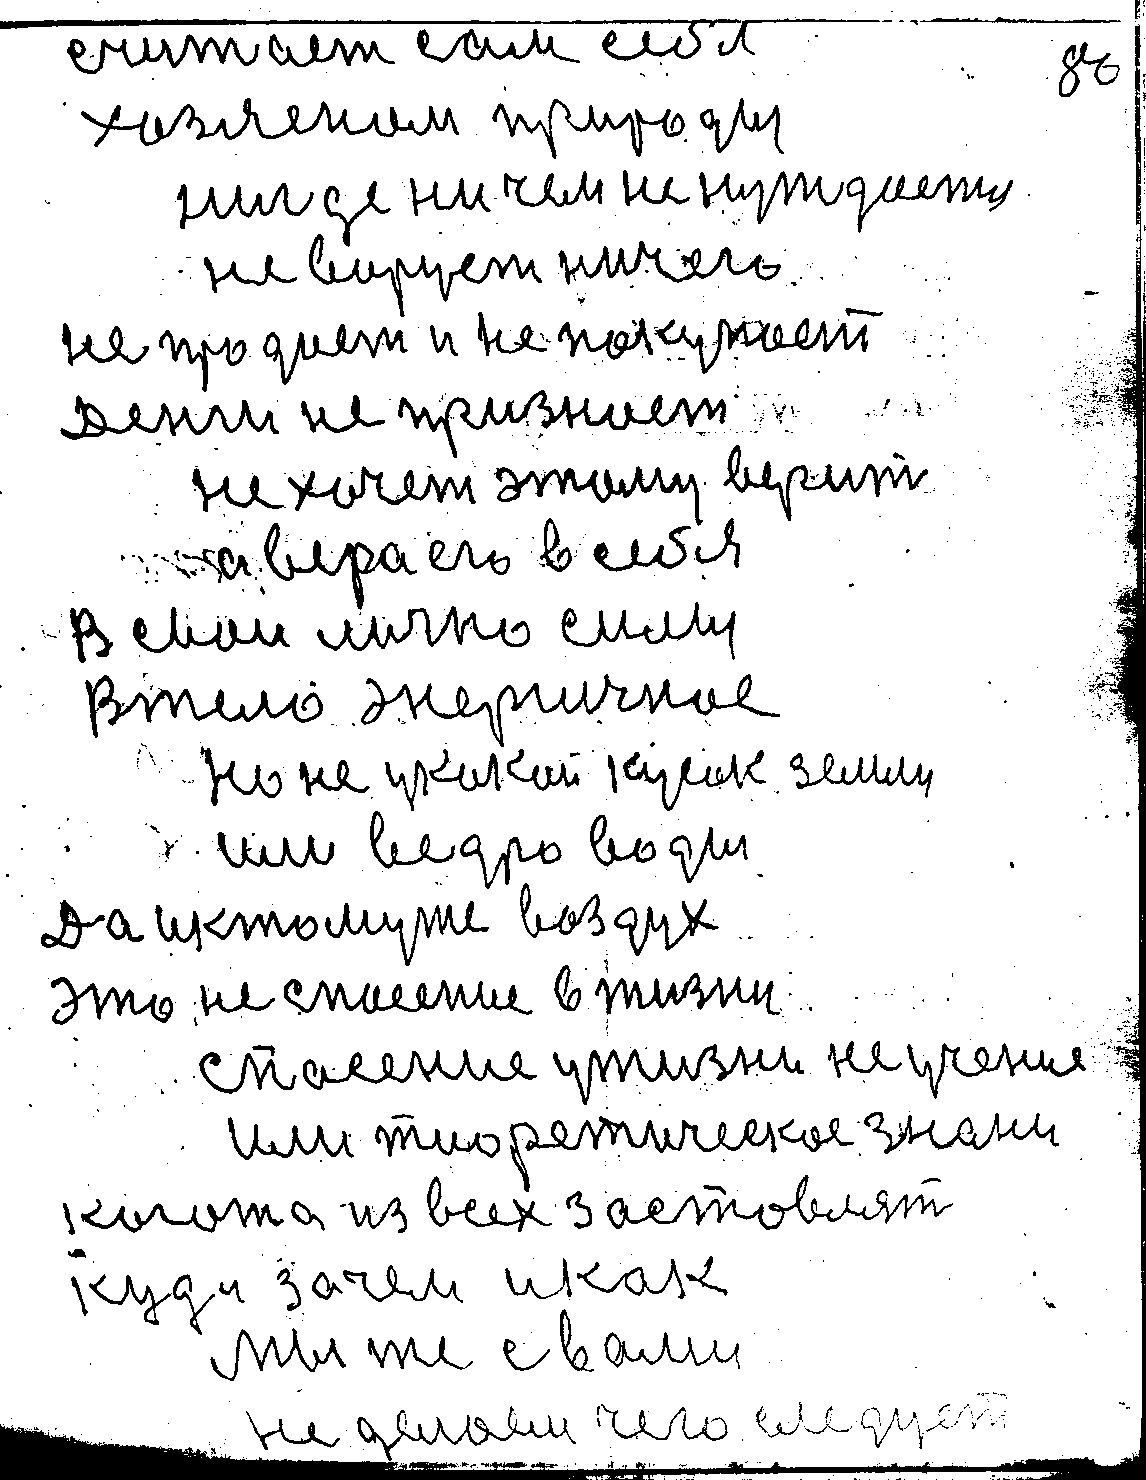 считает сам себя
86
хозяеном природы
нигде ни чем не нуждается
не варует ничего
не продает и не покупает
Денги не признает
не хочет этому верит
а вера его в себя
В свои лично силы
В тело энергичное
но не у какой кусок земли
или ведро воды
Да и ктому же воздух
это не спасение в жизни
спасение у жизни не учение
или тиоретическое знани
когота из всех заставлят
куди зачем и как
Мы же с вами
не делаем чего следует